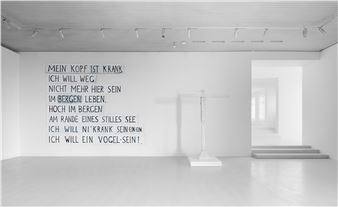 MEIN KOPF IST KRANK
ICH WILL WEG
NICHT MEHR HIER SEIN
IM BERGEN LEBEN,
HOCH IM BERGEN
AM RANDE EINES STILLES SEE
ICH WILL NI'KRANK SEIN
ICH WILL EIN VOGEL-SEIN!